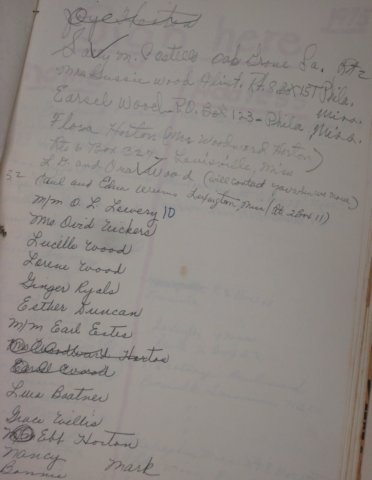 Joye Hested
Sally M. Postier Oak Grove La. Rt 2
Mrs Gussie Wood Flint, Rt. 8 Box 157 Phila. Miss.
Earsel Wood - P.O. Box 123 - Phila Miss.
Flora Horton (Mrs Woodward Horton)
Rt 6 Box 327 Louisville, Miss
L.D. and Oral Wood (will contact you when we move)
Paul and Edna Lexington, Miss (Rt. 2 Box 11)
M/M O. L. Lowery 10
Mrs Ovid Vickers
Lucille Wood
Lorene Wood
Ginger Ryals
Esther Duncan
M/M Earl Estes
Mrs Woodward Horton
Earsel Wood
Lura Boatner
Grace Willis
Ebb Horton
Nancy Mark
Bonnie